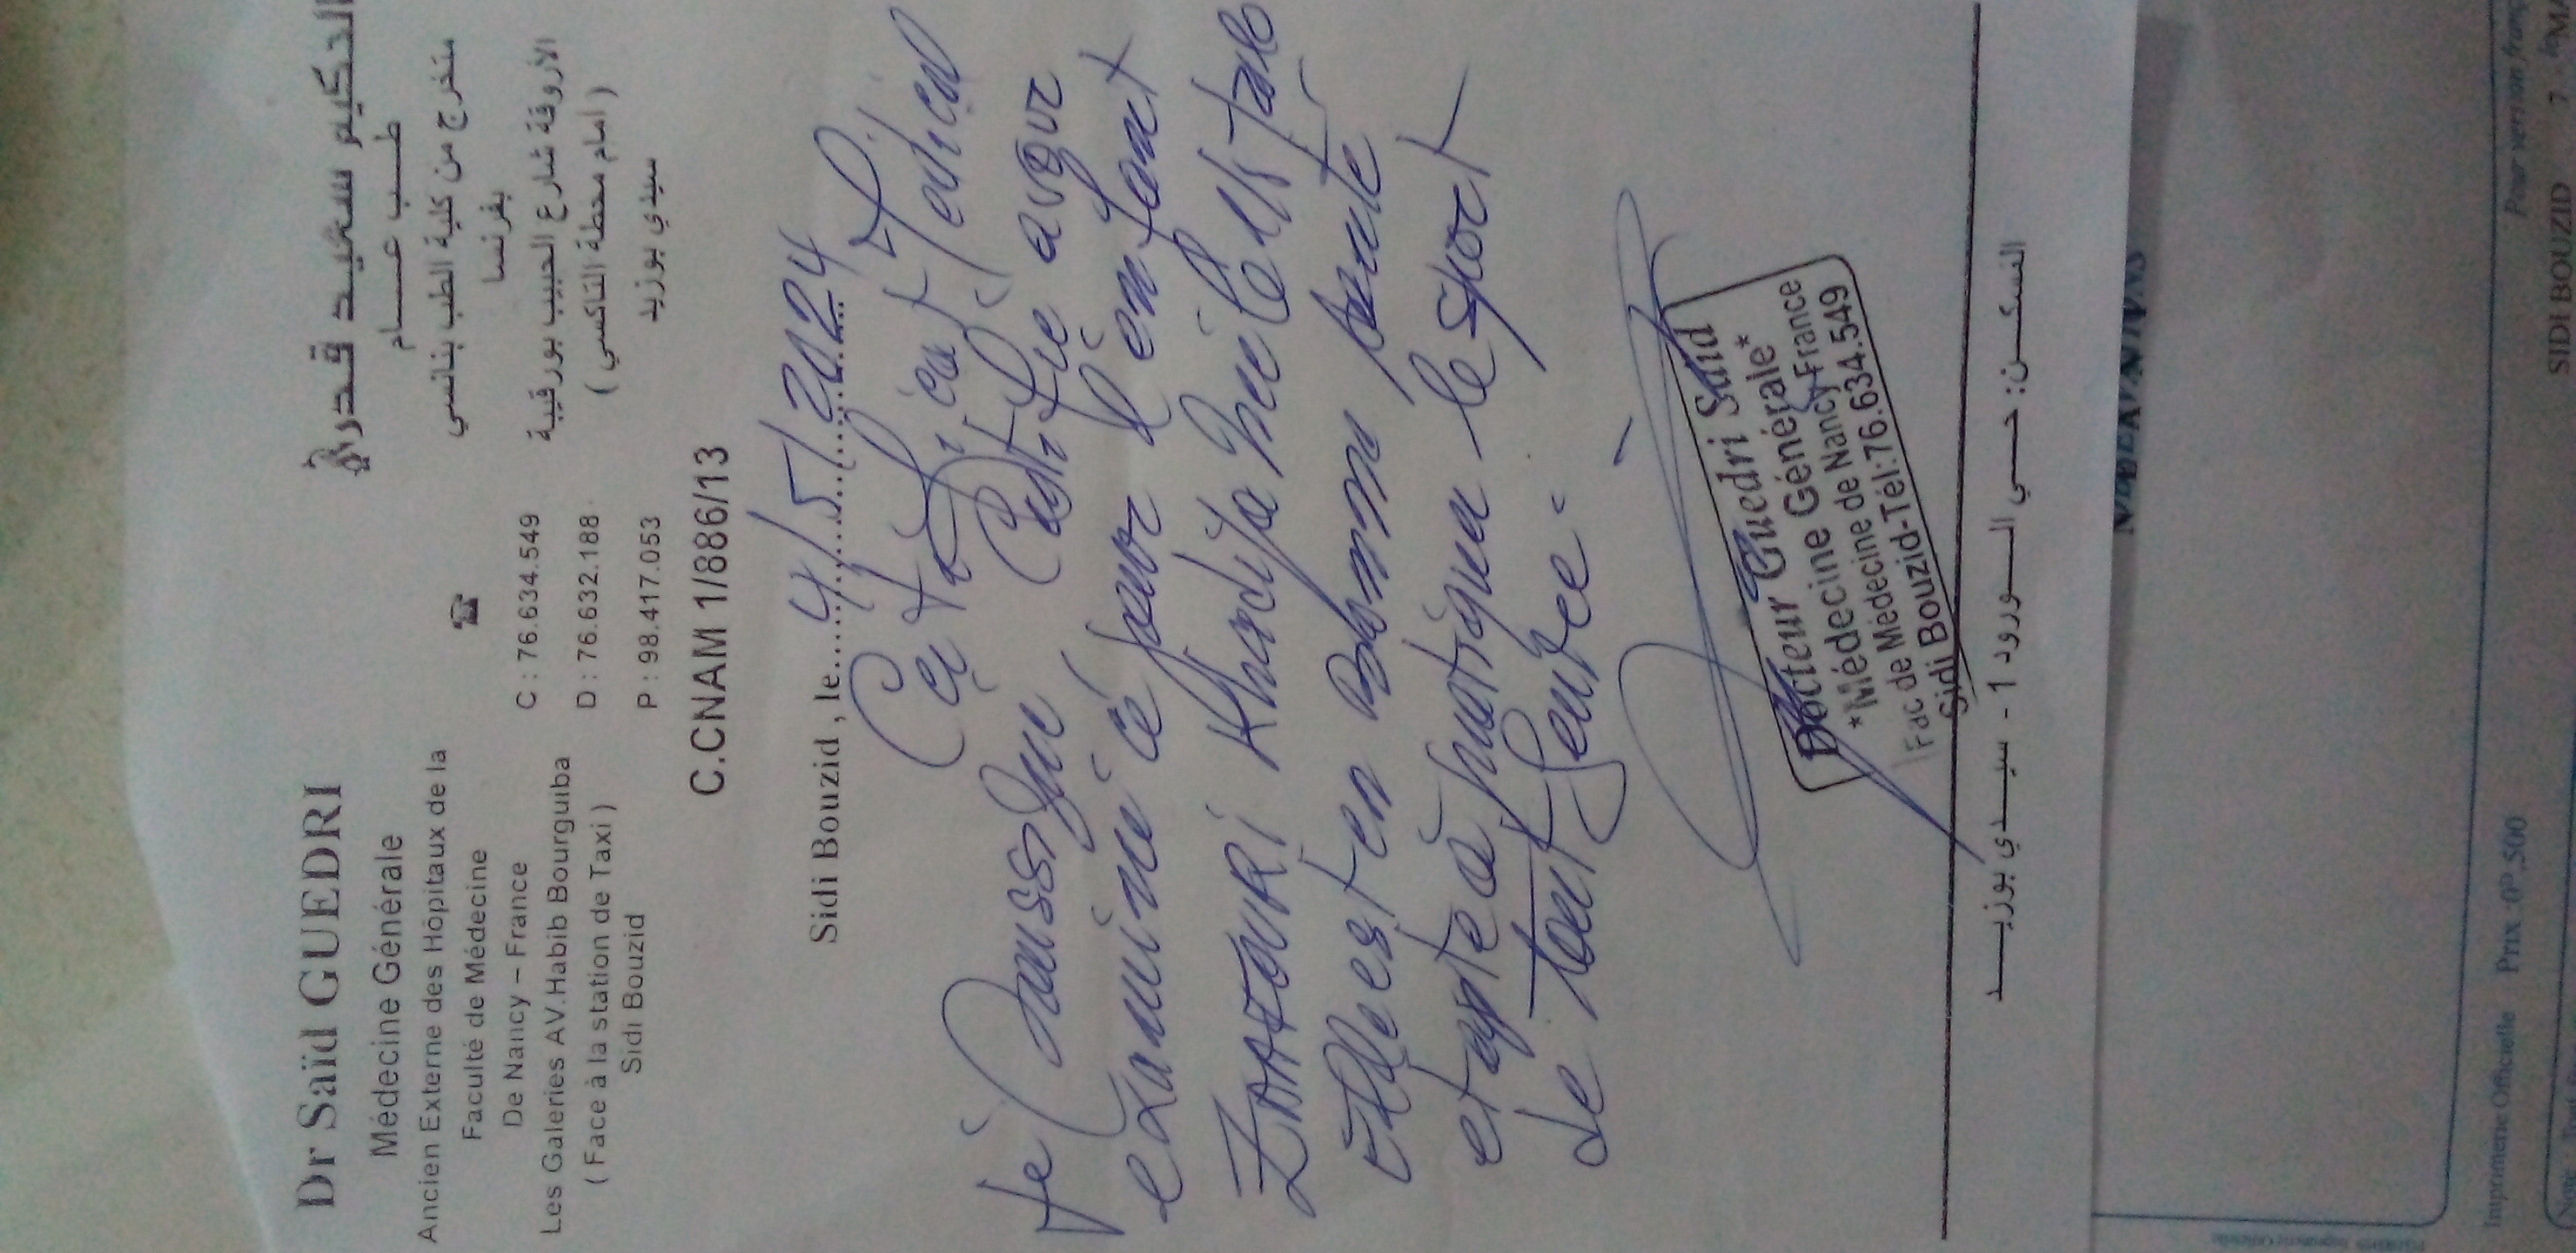 Dr Saïd GUEDRI
Médecine Générale
Ancien Externe des Hôpitaux de la
Faculté de Médecine
De Nancy – France
Les Galeries AV.Habib Bourguiba
( Face à la station de Taxi )
Sidi Bouzid
☎
C : 76.634.549
D : 76.632.188
P : 98.417.053
الحكيم سعيد قدري
طب عام
متخرج من كلية الطب بنانسي
بفرنسا
الأروقة شارع الحبيب بورقيبة
( أمام محطة التاكسي )
سيدي بوزيد
C.CNAM 1/886/13
Sidi Bouzid , le....4/5/2024
Certificat Médical
Je Soussigné Certifie avoir
examiné ce jour l'enfant
ZAATOURI Khadija
Elle est en bonne santé
et apte à pratiquer le sport
de tout genre.
Docteur Guedri Said
*Médecine Générale*
Fac de Médecine de Nancy France
Sidi Bouzid-Tél:76.634.549
المسكن: حي الورود 1 - سيدي بوزيد
Imprimerie Officielle Prix 0D,500
Pour version
SIDI BOUZID